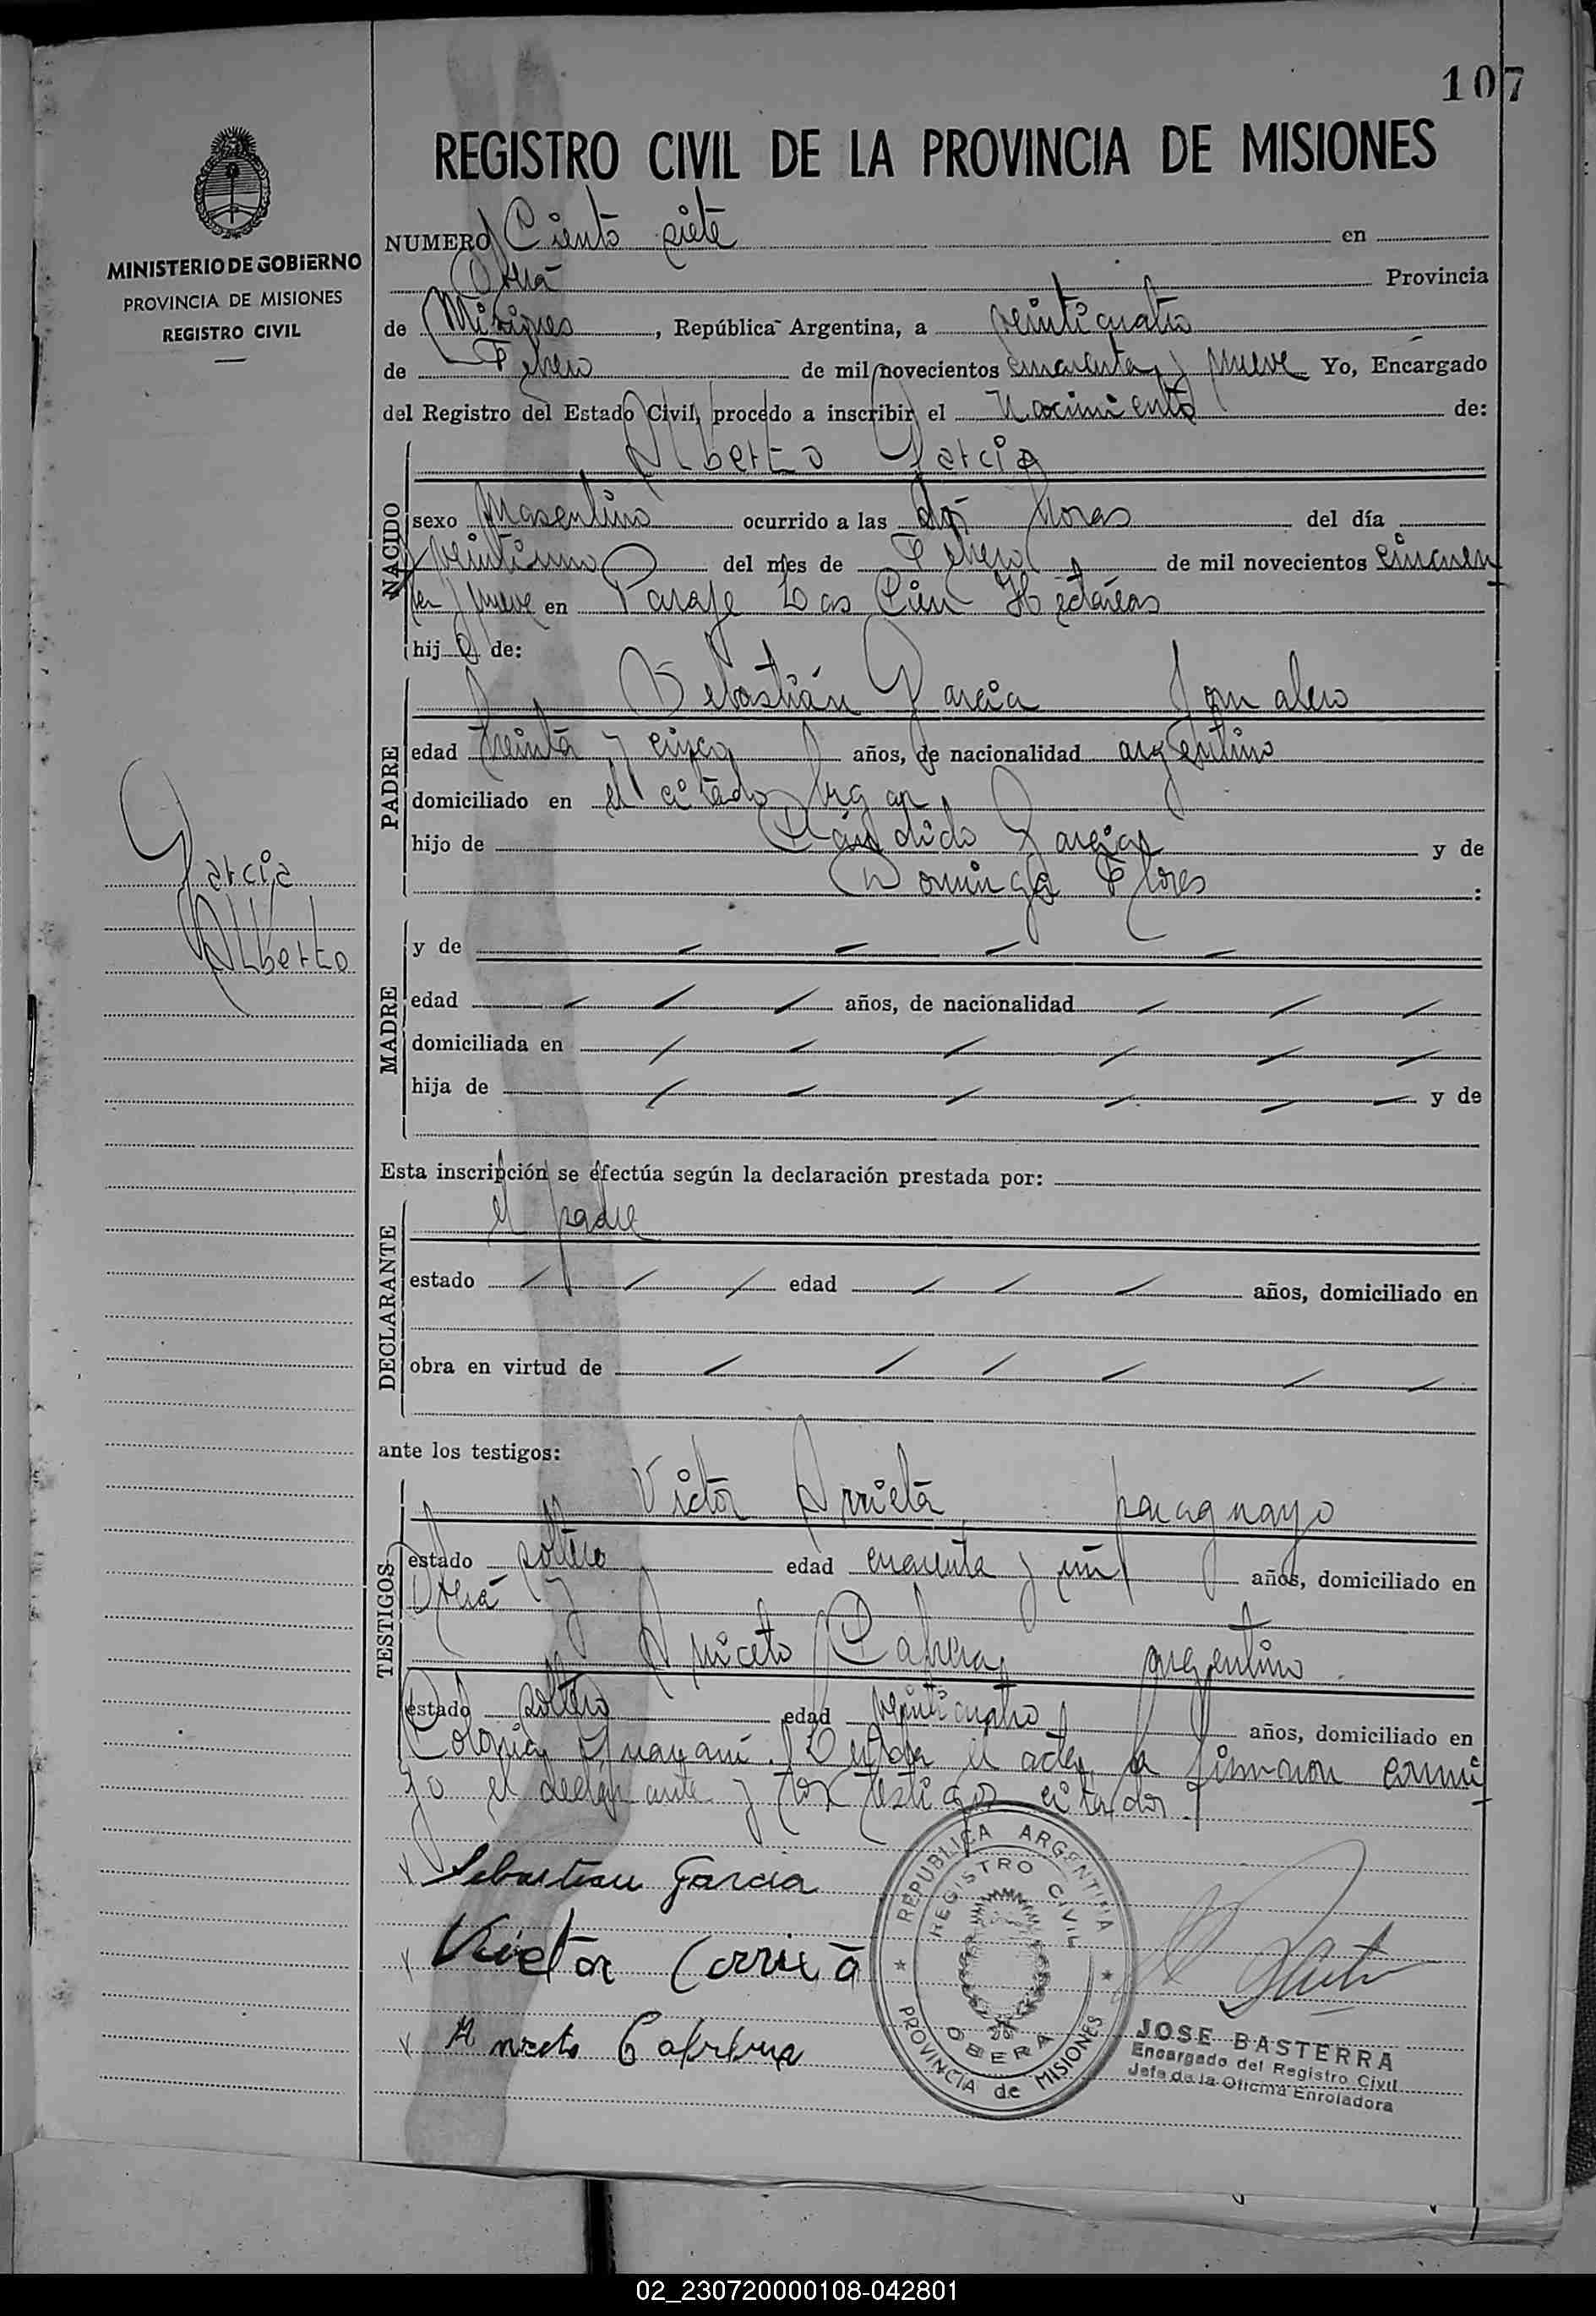 107
REGISTRO CIVIL DE LA PROVINCIA DE MISIONES
MINISTERIO DE GOBIERNO
PROVINCIA DE MISIONES
REGISTRO CIVIL
NUMERO Ciento siete en
Oberá Provincia
de Misiones, República Argentina, a veinticuatro
de Febrero de mil novecientos cincuenta y nueve Yo, Encargado
del Registro del Estado Civil, procedo a inscribir el Nacimiento de:
NACIDO
Alberto Garcia
sexo Masculino ocurrido a las dos horas del día
veintiuno del mes de Febrero de mil novecientos cincuen
ta y nueve en Paraje Las Cien Hectáreas
hijo de:
PADRE
Sebastián Garcia Jornalero
edad treinta y cinco años, de nacionalidad argentino
domiciliado en el citado lugar,
hijo de Cándido Garcia y de
Dominga Flores :
Garcia
Alberto
MADRE
y de
edad años, de nacionalidad
domiciliada en
hija de y de
Esta inscripción se efectúa según la declaración prestada por:
DECLARANTE
el padre
estado edad años, domiciliado en
obra en virtud de
ante los testigos:
TESTIGOS
Victor Arrieta, paraguayo
estado soltero edad cuarenta y un años, domiciliado en
Oberá y
Aniceto Cabrera, argentino
estado soltero edad veinticuatro años, domiciliado en
Colonia Guaraní. Leída el acta, la firmaron conmi
go el declarante y los testigos citados.
Sebastian Garcia
Victor
Aniceto Cabrera
REPUBLICA ARGENTINA
REGISTRO CIVIL
OBERA
PROVINCIA de MISIONES
JOSE BASTERRA
Encargado del Registro Civil
Jefe de la Oficina Enroladora
02_230720000108-042801